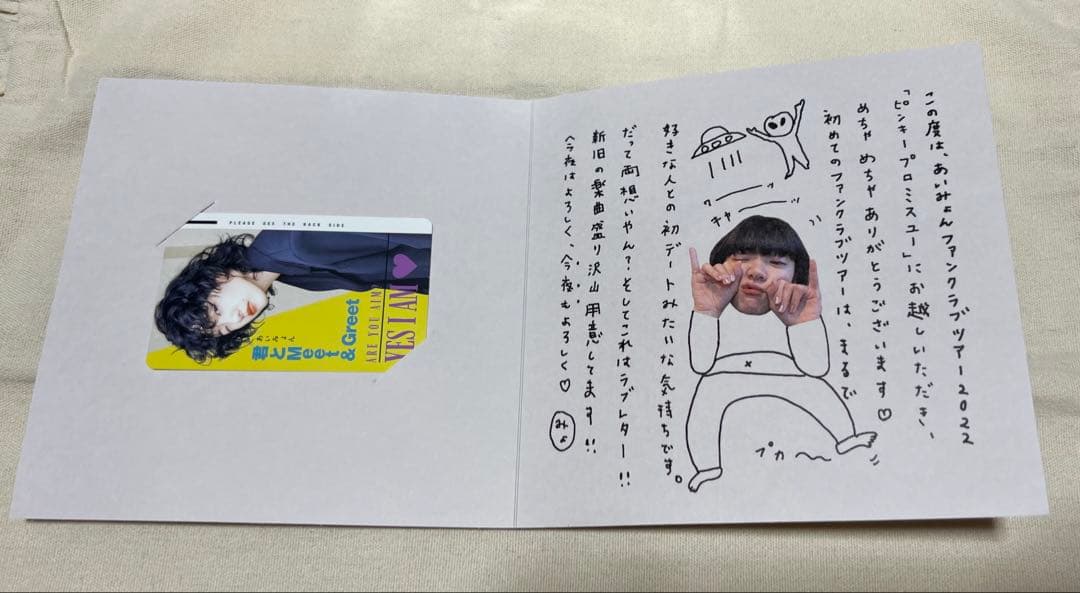 PLEASE SEE THE BACK SIDE
あいみょん
君とMeet
& Greet
ARE YOU AIM?
YES I AM♥
この度は、あいみょんファンクラブツアー2022
「ピンキープロミスユー」にお越しいただき、
めちゃめちゃありがとうございます♡
初めてのファンクラブツアーは、まるで
好きな人との初デートみたいな気持ちです。
だって両想いやん?そしてこれはラブレター!!
新旧の楽曲盛り沢山用意してます!!
今夜はよろしく、今夜もよろしく♡
みょ
ワーーッ
キャーーッ
プカ〜〜